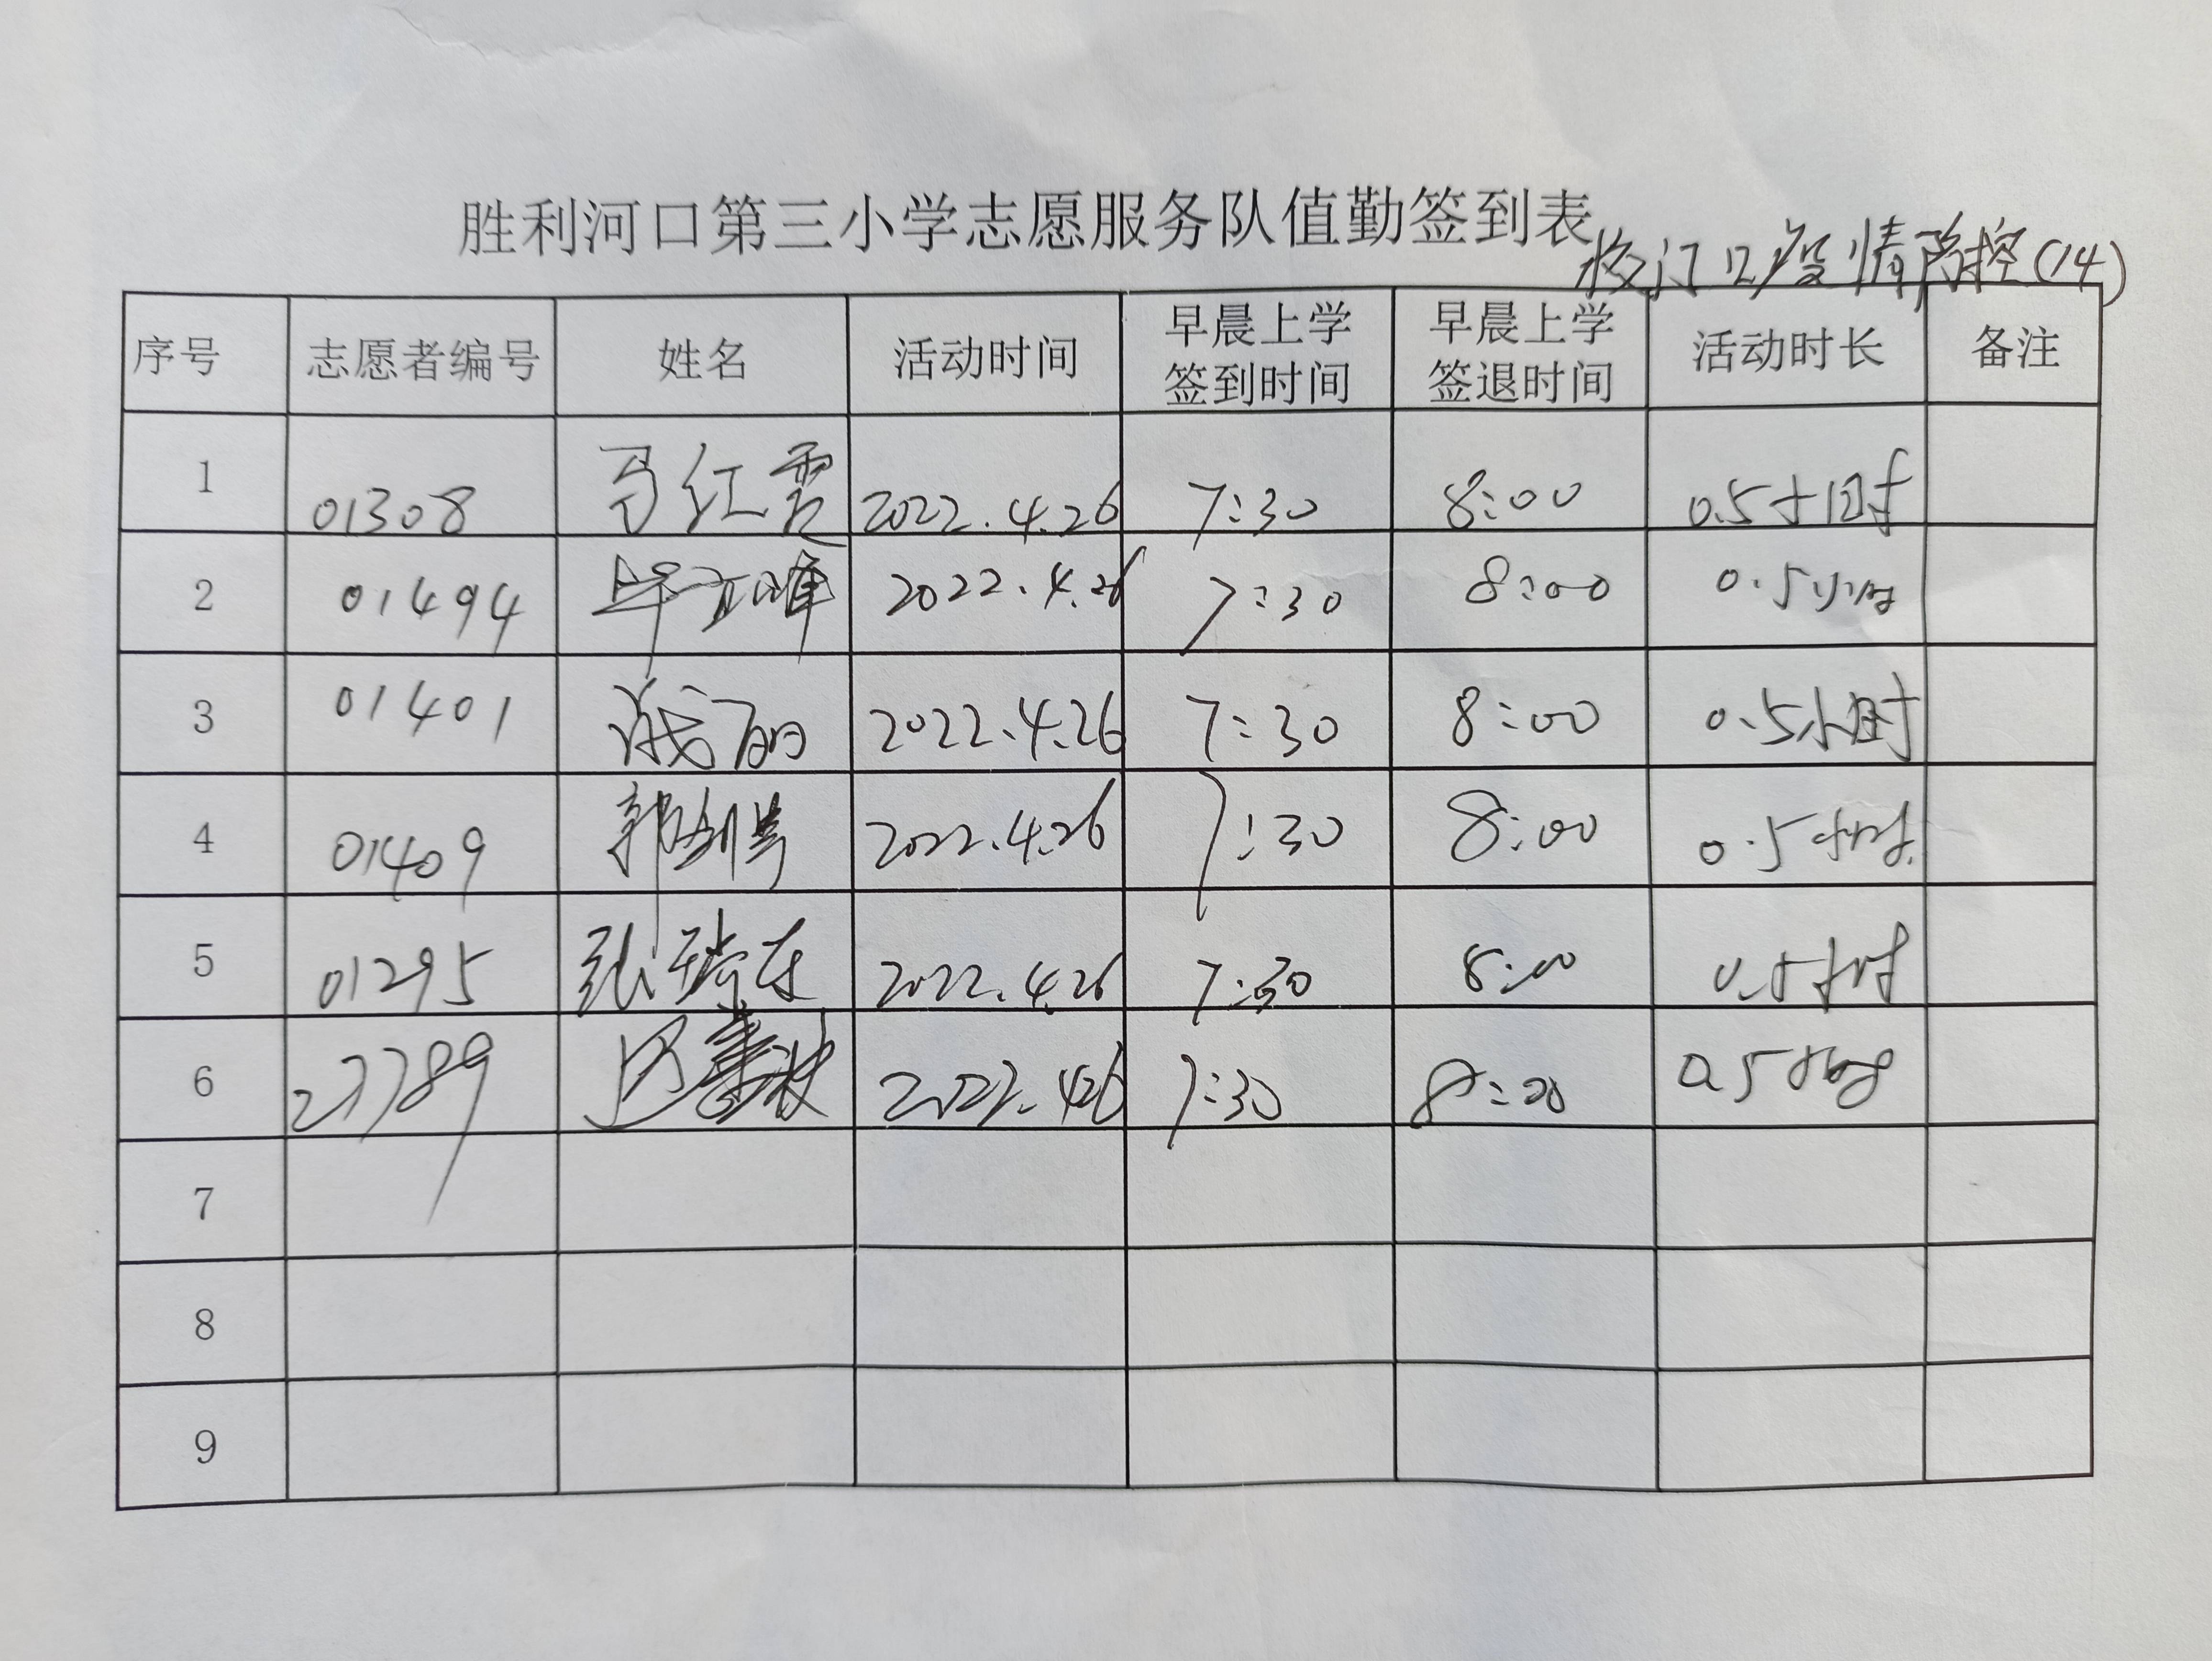 胜利河口第三小学志愿服务队值勤签到表
校门口疫情防控(14)
序号 志愿者编号 姓名 活动时间 早晨上学签到时间 早晨上学签退时间 活动时长 备注
1 01308 马红霞 2022.4.26 7:30 8:00 0.5小时
2 01494 2022.4.26 7:30 8:00 0.5小时
3 01401 2022.4.26 7:30 8:00 0.5小时
4 01409 2022.4.26 7:30 8:00 0.5小时
5 01295 张瑞东 2022.4.26 7:30 8:00 0.5小时
6 27789 2022.4.26 7:30 8:00 0.5小时
7
8
9